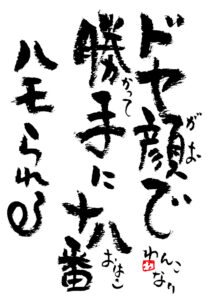 ドヤ顔で
がお
勝手に十八番
かって
おはこ
ハモられる
わんこなり
わ